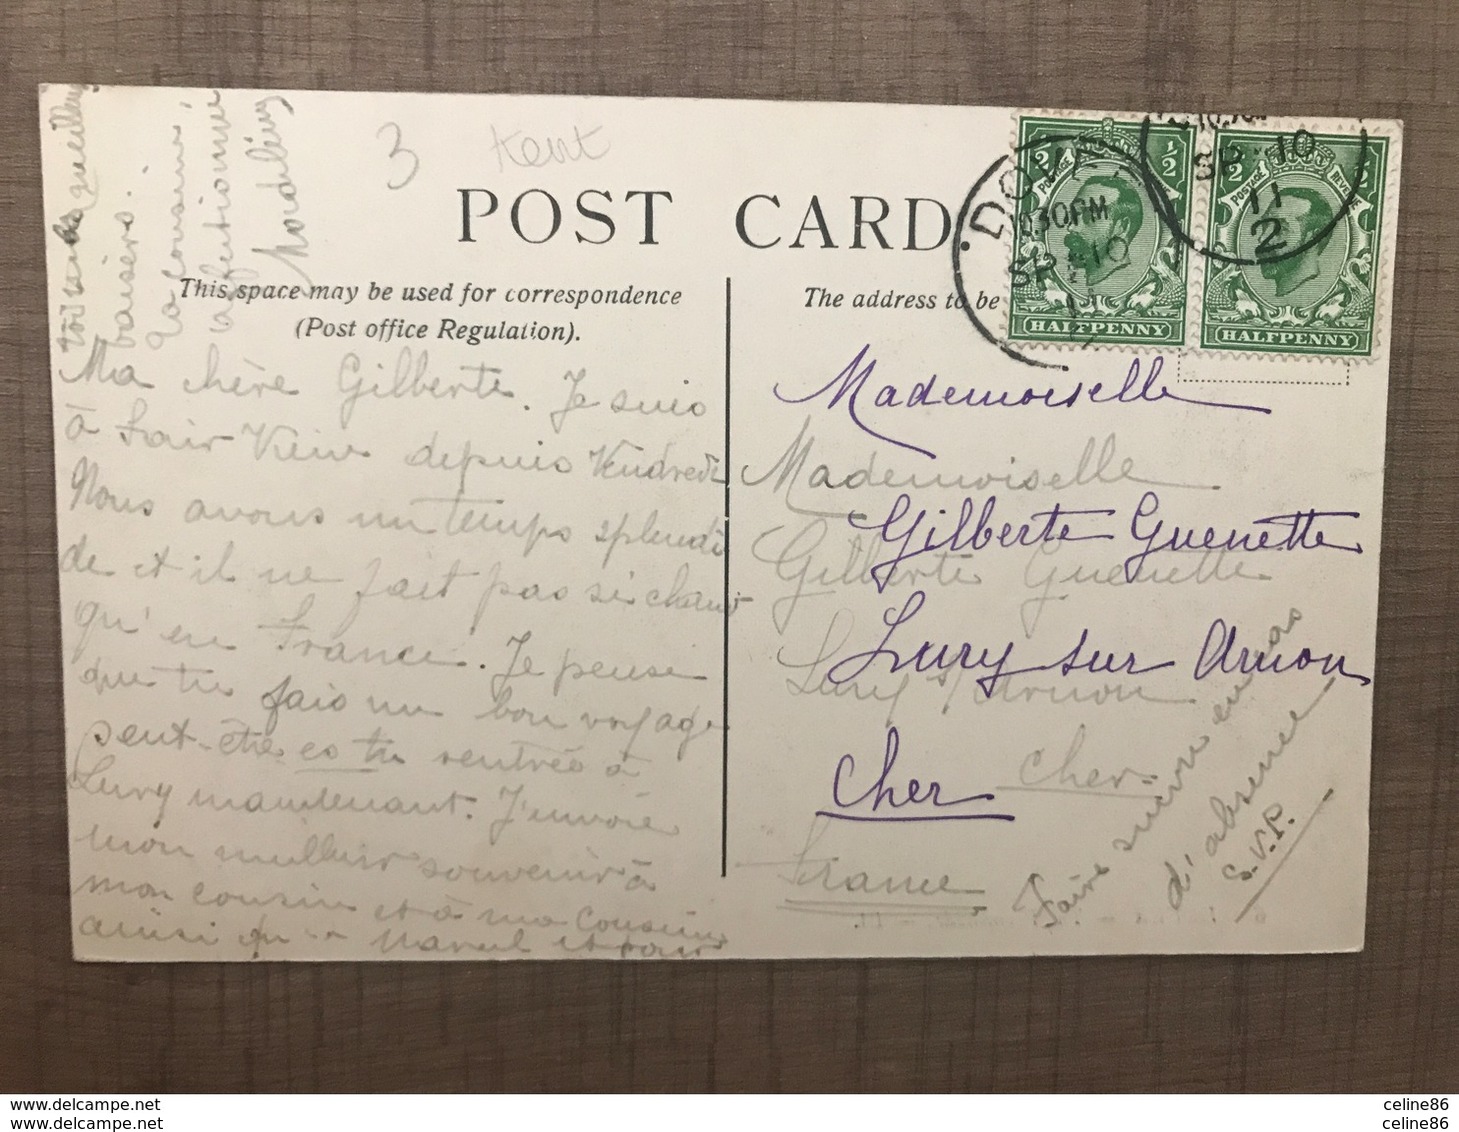 3 Kent
POST CARD
This space may be used for correspondence
(Post office Regulation).
The address to be
DOVER
10.30PM
SP 10
11
10.30PM
SP 10
11
2
POSTAGE REVENUE
HALFPENNY
POSTAGE REVENUE
HALFPENNY
Ma chère Gilberte. Je suis
à depuis Vendredi
Nous avons un temps splendi
de et il ne fait pas si chaud
qu'en France. Je pense
que tu fais un bon voyage
peut-être es tu rentrée à
Lury maintenant. J'envoie
mon meilleur souvenir à
mon cousin et à ma cousine
ainsi qu' Marcel et pour
toi
baisers.
Ta cousine,
affectionnée
Mademoiselle
Gilberte Guenette
Lury sur Arnon
Cher
Mademoiselle
Gilberte Guenette
Lury s/Arnon
Cher.
France
Faire suivre en cas
d'absence
S.V.P.
celine86
celine86
www.delcampe.net
www.delcampe.net